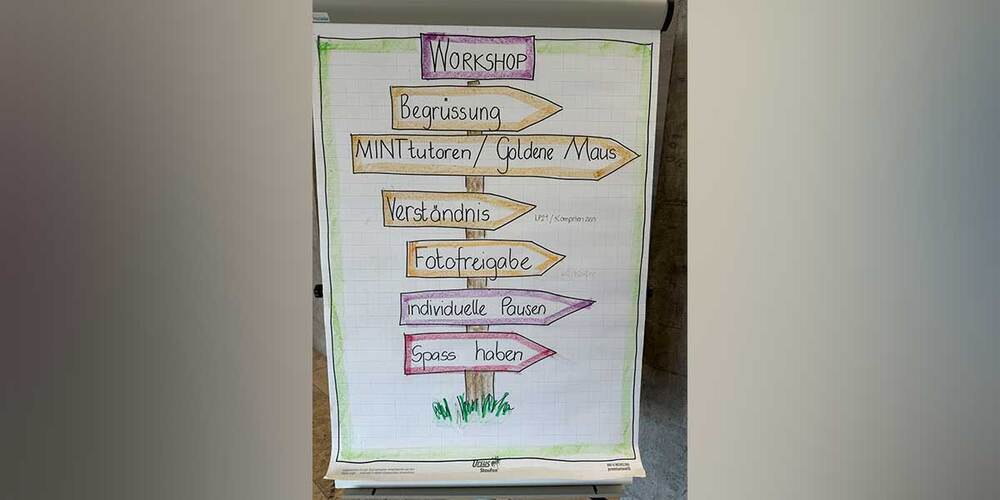 WORKSHOP
Begrüssung
MINTtutoren / Goldene Maus
Verständnis
LP21 / Kompetenzen
Fotofreigabe
individuelle Pausen
Spass haben
Ursus
StauFen